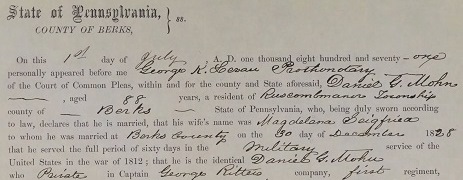 State of Pennsylvania, } ss.
COUNTY OF BERKS,
On this 1st day of July A. D. one thousand eight hundred and seventy-one
personally appeared before me George K. Lesau Prothonotary
of the Court of Common Pleas, within and for the county and State aforesaid, Daniel G. Mohn
, aged 88 years, a resident of Ruscombmanor Township
county of Berks State of Pennsylvania, who, being duly sworn according
to law, declares that he is married, that his wife's name was Magdelana Seigfried
to whom he was married at Berks County on the 30 day of December 1828
that he served the full period of sixty days in the Military service of the
United States in the war of 1812; that he is the identical Daniel G. Mohn
who Private in Captain George Ritters company, first regiment,